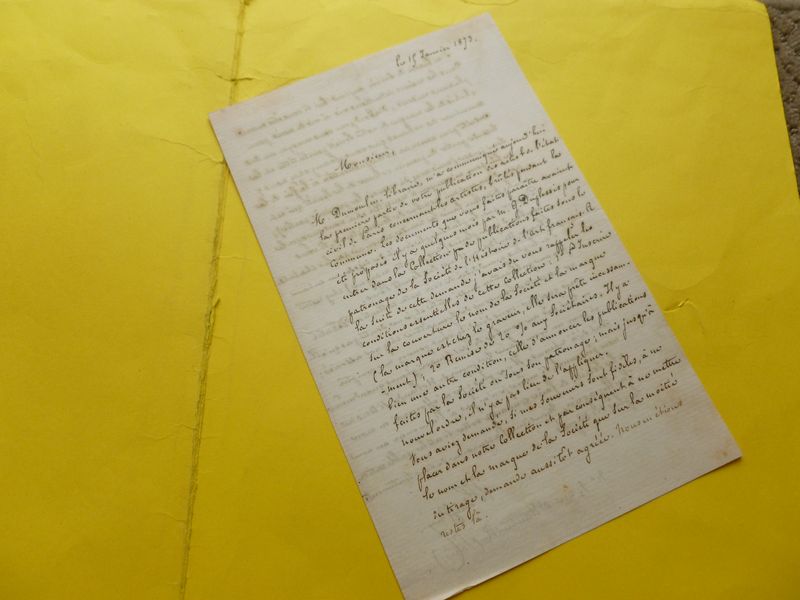 le 15 Janvier 1873.
Monsieur,
M. Dumoulin, libraire, m'a communiqué aujourd'hui
la première partie de votre publication des actes de l'état
civil de Paris concernant les artistes, brûlés pendant la
Commune. Les documents que vous faites paraître avaient
été proposés il y a quelques mois par M. G. Duplessis pour
entrer dans la Collection de publications faites sous le
patronage de la Société de l'Histoire de l'Art français. à
la suite de cette demande j'avais du vous rappeler les
conditions essentielles de cette collection: 1º Inscrire
sur la couverture le nom de la Société et la marque
(la marque est chez le graveur, elle sera prête incessam-
-ment); 2º Remise de 20 % aux Sociétaires. Il y a
bien une autre condition, celle d'annoncer les publications
faites par la Société ou sous son patronage; mais jusqu'à
nouvel ordre, il n'y a pas lieu de l'appliquer.
Vous aviez demandé, si mes souvenirs sont fidèles, à ne
placer dans notre Collection et par conséquent à ne mettre
le nom et la marque de la Société que sur la moitié
du tirage, demande aussitôt agréée. Nous en étions
restés là.